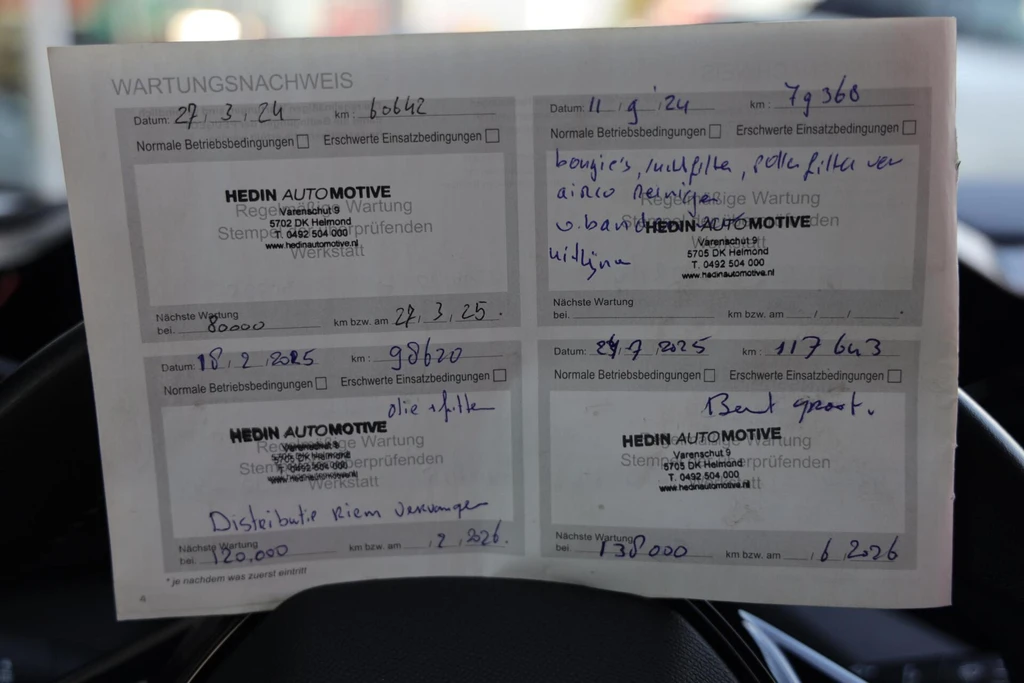 WARTUNGSNACHWEIS
Datum: 27, 3, 24 km: 60642
Normale Betriebsbedingungen Erschwerte Einsatzbedingungen
HEDIN AUTOMOTIVE
Regelmäßige Wartung
Varenschut 9
5702 DK Helmond
Stempel überprüfenden
T. 0492 504 000
www.hedinautomotive.nl
Werkstatt
Nächste Wartung
bei. 80000 km bzw. am 27, 3, 25.
Datum: 11 / 9 '24 km: 79360
Normale Betriebsbedingungen Erschwerte Einsatzbedingungen
bougie's, luchtfilter, pollen filter ver
airco reinigen
Regelmäßige Wartung
HEDIN AUTOMOTIVE
uitlijnen
Varenschut 9
5705 DK Helmond
T. 0492 504 000
www.hedinautomotive.nl
Nächste Wartung
bei. km bzw. am / / .
Datum: 18, 2, 2025 km: 98620
Normale Betriebsbedingungen Erschwerte Einsatzbedingungen
olie + filter
HEDIN AUTOMOTIVE
Regelmäßige Wartung
Varenschut 9
5705 DK Helmond
Stempel überprüfenden
T. 0492 504 000
www.hedinautomotive.nl
Werkstatt
Distributie Riem vervangen
Nächste Wartung
bei. 120,000 km bzw. am , 2, 2026.
Datum: 24, 7, 2025 km: 117643
Normale Betriebsbedingungen Erschwerte Einsatzbedingungen
Beurt groot.
HEDIN AUTOMOTIVE
Regelmäßige Wartung
Varenschut 9
5705 DK Helmond
Stempel überprüfenden
T. 0492 504 000
www.hedinautomotive.nl
Werkstatt
Nächste Wartung
bei 138000 km bzw. am , 6, 2026
* je nachdem was zuerst eintriff
4